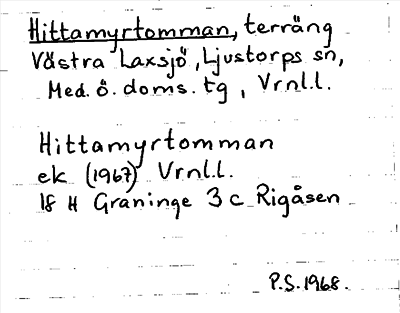 Hittamyrtomman, terräng
Västra Laxsjö, Ljustorps sn,
Med. ö. doms. tg, Vrnl.l.
Hittamyrtomman
ek (1967) Vrnl.l.
18 H Graninge 3 c Rigåsen
P.S. 1968.